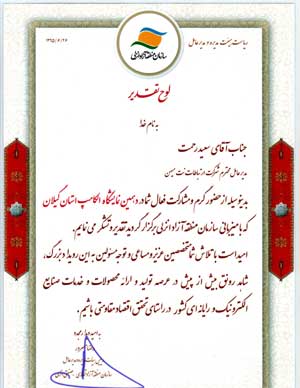 ریاست هیئت مدیره و مدیرعامل
۱۳۹۵/۶/۲۶
سازمان منطقه آزاد انزلی
لوح تقدیر
به نام خدا
جناب آقای سعید رحمت
مدیرعامل محترم شرکت ارتباطات نت مبین
بدینوسیله از حضور گرم و مشارکت فعال شما در دهمین نمایشگاه الکامپ استان گیلان
که با میزبانی سازمان منطقه آزاد انزلی برگزار گردید تقدیر و تشکر می نمایم.
امید است با تلاش شما متخصصین عزیز و مساعی و توجه مسئولین به این رویداد بزرگ،
شاهد رونق بیش از پیش در عرصه تولید و ارائه محصولات و خدمات صنایع
الکترونیک و رایانه ای کشور در راستای تحقق اقتصاد مقاومتی باشیم.
رئیس هیات مدیره و مدیرعامل
سازمان منطقه آزاد